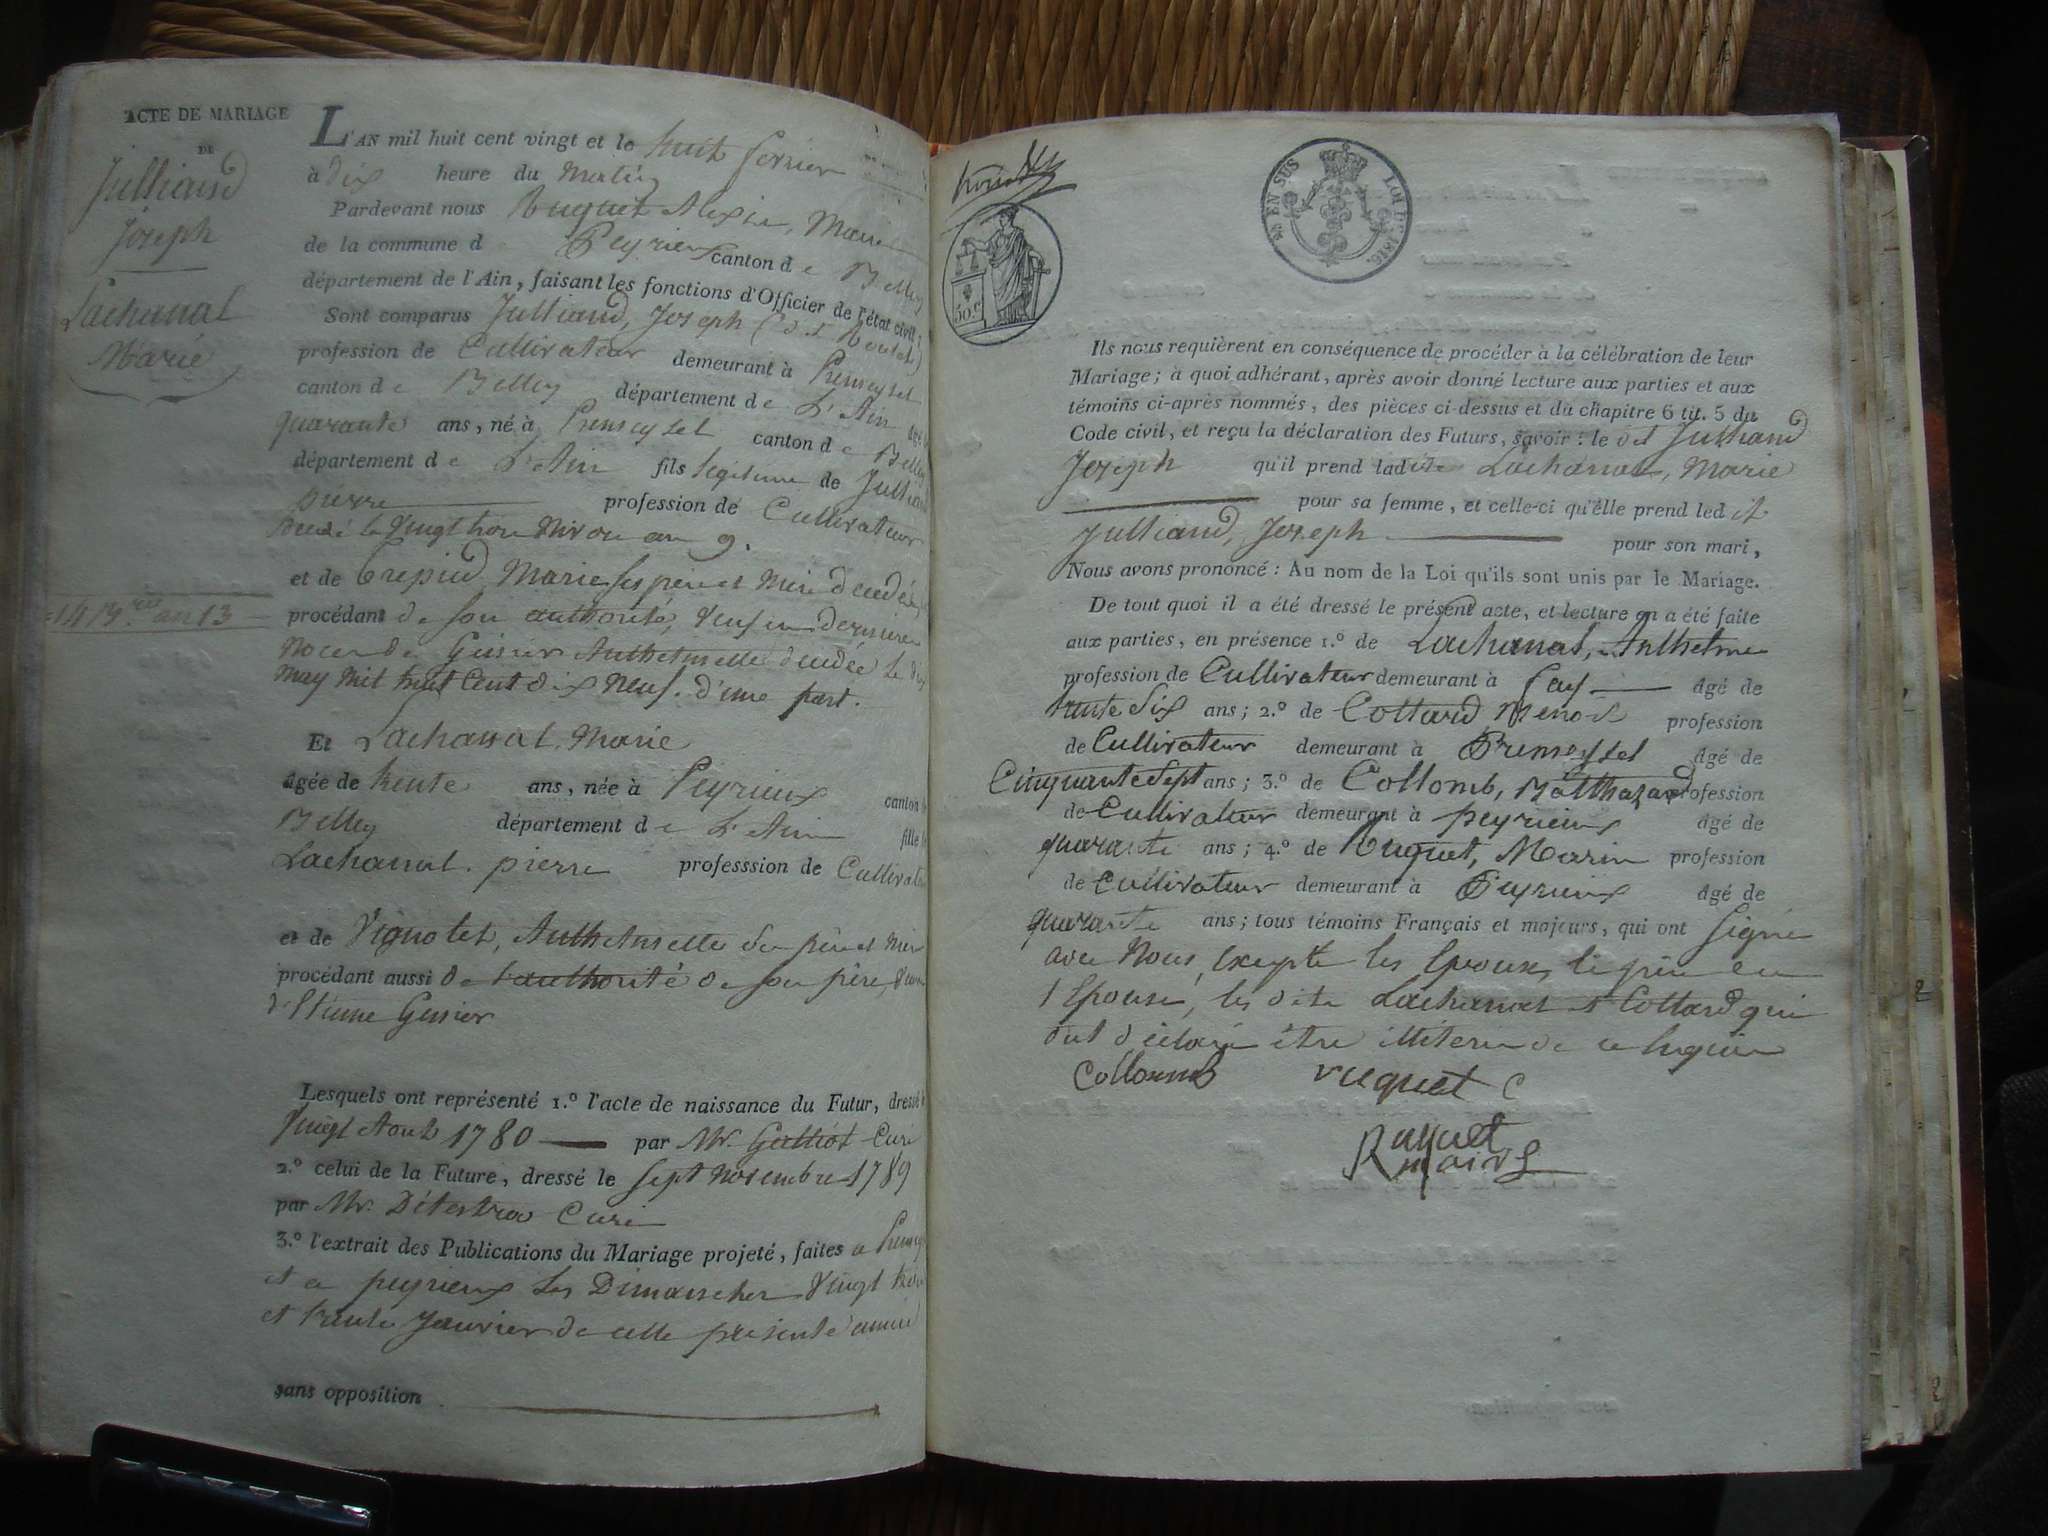 ACTE DE MARIAGE
DE
Julliand
Joseph
Lachanal
Marie
L'AN mil huit cent vingt et le huit fevrier
à dix heure du Matin
Pardevant nous Ruguet Alexis, Maire
de la commune d Peyrieux canton de Belley
département de l'Ain, faisant les fonctions d'Officier de l'état civil;
Sont comparus Julliand, Joseph
profession de Cultivateur demeurant à Premeysel
canton de Belley département de L'Ain agé
quarante ans, né à Premeysel canton de Belley
département de L'Ain fils legitime de Julliand
pierre profession de Cultivateur
Decedé le Vingt trois Nivose an 9.
et de Trepied Marie ses père et Mère décédés
=14 an 13
procédant de son authorité, Veuf en dernieres
Noces de Gessier Anthelmette décédée le dix
May Mil huit Cent dix Neuf. d'une part.
Et Lachanal. Marie
âgée de trente ans, née à Peyrieux canton
Belley département de L'Ain fille
Lachanal. pierre professsion de Cultivateur
et de Vignolet, Anthelmette ses père et Mère
procédant aussi de l'authorité de son père, Veuve
d'Etienne Gessier
Lesquels ont représenté 1.º l'acte de naissance du Futur, dressé
Vingt Aout 1780 par Mr. Galliot Curé
2.º celui de la Future, dressé le sept Novembre 1789
par Mr. Curé
3.º l'extrait des Publications du Mariage projeté, faites a
et a peyrieux les Dimanches Vingt trois
et trente Janvier de cette presente année
sans opposition
EN SUS LOI DE 1816.
50.c
Ils nous requièrent en conséquence de procéder à la célébration de leur
Mariage; à quoi adhérant, après avoir donné lecture aux parties et aux
témoins ci-après nommés, des pièces ci-dessus et du chapitre 6 tit. 5 du
Code civil, et reçu la déclaration des Futurs, savoir: le dit Julliand
Joseph qu'il prend ladite Lachanal, Marie
pour sa femme, et celle-ci qu'elle prend ledit
Julliand, Joseph pour son mari,
Nous avons prononcé: Au nom de la Loi qu'ils sont unis par le Mariage.
De tout quoi il a été dressé le présent acte, et lecture en a été faite
aux parties, en présence 1.º de Lachanal, Anthelme
profession de Cultivateur demeurant à Fay âgé de
trente Six ans; 2.º de Cottard Benoit profession
de Cultivateur demeurant à Premeyssel âgé de
Cinquante Sept ans; 3.º de Collomb, Balthazard profession
de Cultivateur demeurant à peyrieux âgé de
quarante ans; 4.º de Ruguet, Marin profession
de Cultivateur demeurant à Peyrieux âgé de
quarante ans; tous témoins Français et majeurs, qui ont Signé
avec Nous, excepté les Epoux, le père de
l'Epouse, les dits Lachanal et Cottard qui
ont déclaré être illiteré de ce Requis
Collomb ruguet
Ruguet
maire